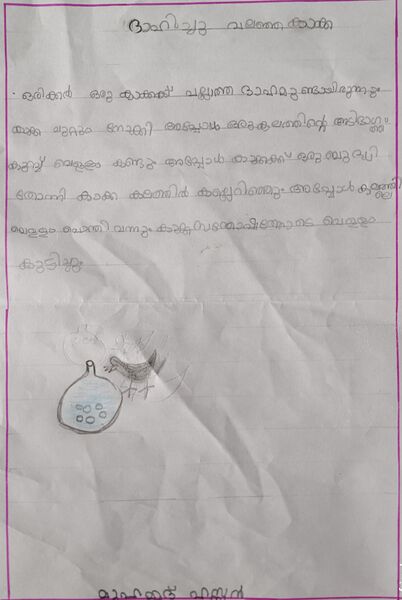 ദാഹിച്ചു വലഞ്ഞ കാക്ക
· ഒരിക്കൽ ഒരു കാക്കക്ക് വല്ലാത്ത ദാഹമുണ്ടായിരുന്നും
കാക്ക ചുറ്റും നോക്കി അപ്പോൾ ഒരു കലത്തിന്റെ അടിഭാഗത്ത്
കുറച്ച് വെള്ളം കണ്ടും അപ്പോൾ കാക്കക്ക് ഒരു ബുദ്ധി
തോന്നി കാക്ക കലത്തിൽ കല്ലെറിഞ്ഞും അപ്പോൾ
വെള്ളം പൊന്തി വന്നും കാക്ക സന്തോഷത്തോടെ വെള്ളം
കുടിച്ചും
മുഹമ്മദ് ഹസ്സൻ